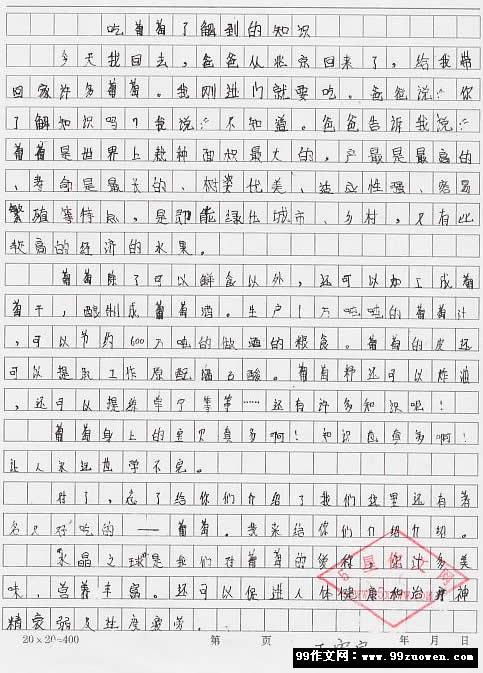 吃葡萄了解到的知识
今天我回去，爸爸从北京回来了，给我带
回家许多葡萄。我刚进门就要吃。爸爸说：“你
了解知识吗？我说：“不知道。爸爸告诉我说：“
葡萄是世界上栽种面积最大的，产量是最高的
、寿命是最长的、树姿优美、适应性强、容易
繁殖等特点，是即能绿化城市、乡村，又有比
较高的经济的水果。
葡萄除了可以鲜食以外，还可以加工成葡
萄干，酿制成葡萄酒。生产1万吨吨的葡萄汁
，可以节约600万吨的做酒的粮食。葡萄的皮还
可以提取工作原酞酒石酸。葡萄籽还可以炸油
，还可以提练单宁等等……还有许多知识呢！
葡萄身上的宝贝真多啊！知识也真多啊！
让人永远也学不完。
对了，忘了给你们介绍了我们这里还有著
名又好吃的——葡萄。我来给你们介绍介绍。
“水晶之球”是我们对葡萄的美称，你过多美
味，营养丰富。还可以促进人体健康和治疗神
精衰弱及过度疲劳。
20×20=400 第 页 年 月 日
99作文网：www.99zuowen.com